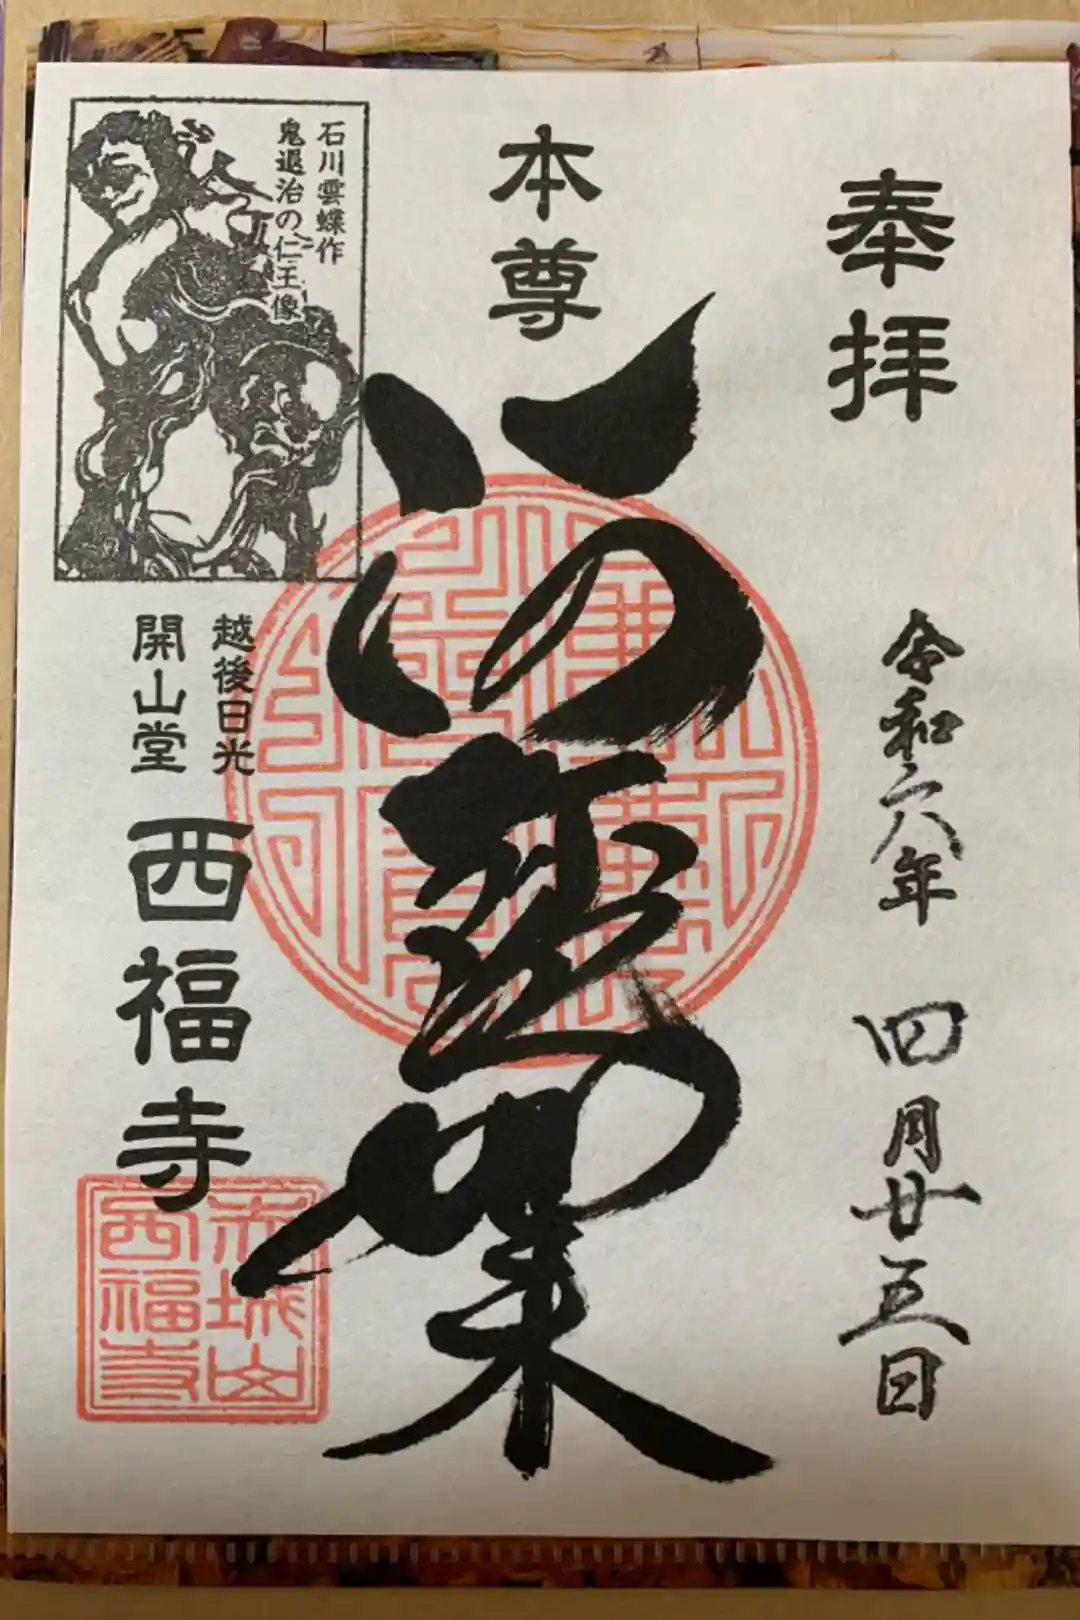 奉拝
令和六年 四月廿五日
本尊
如来
石川雲蝶作
鬼退治の仁王像
越後日光
開山堂
西福寺
赤城山
西福寺